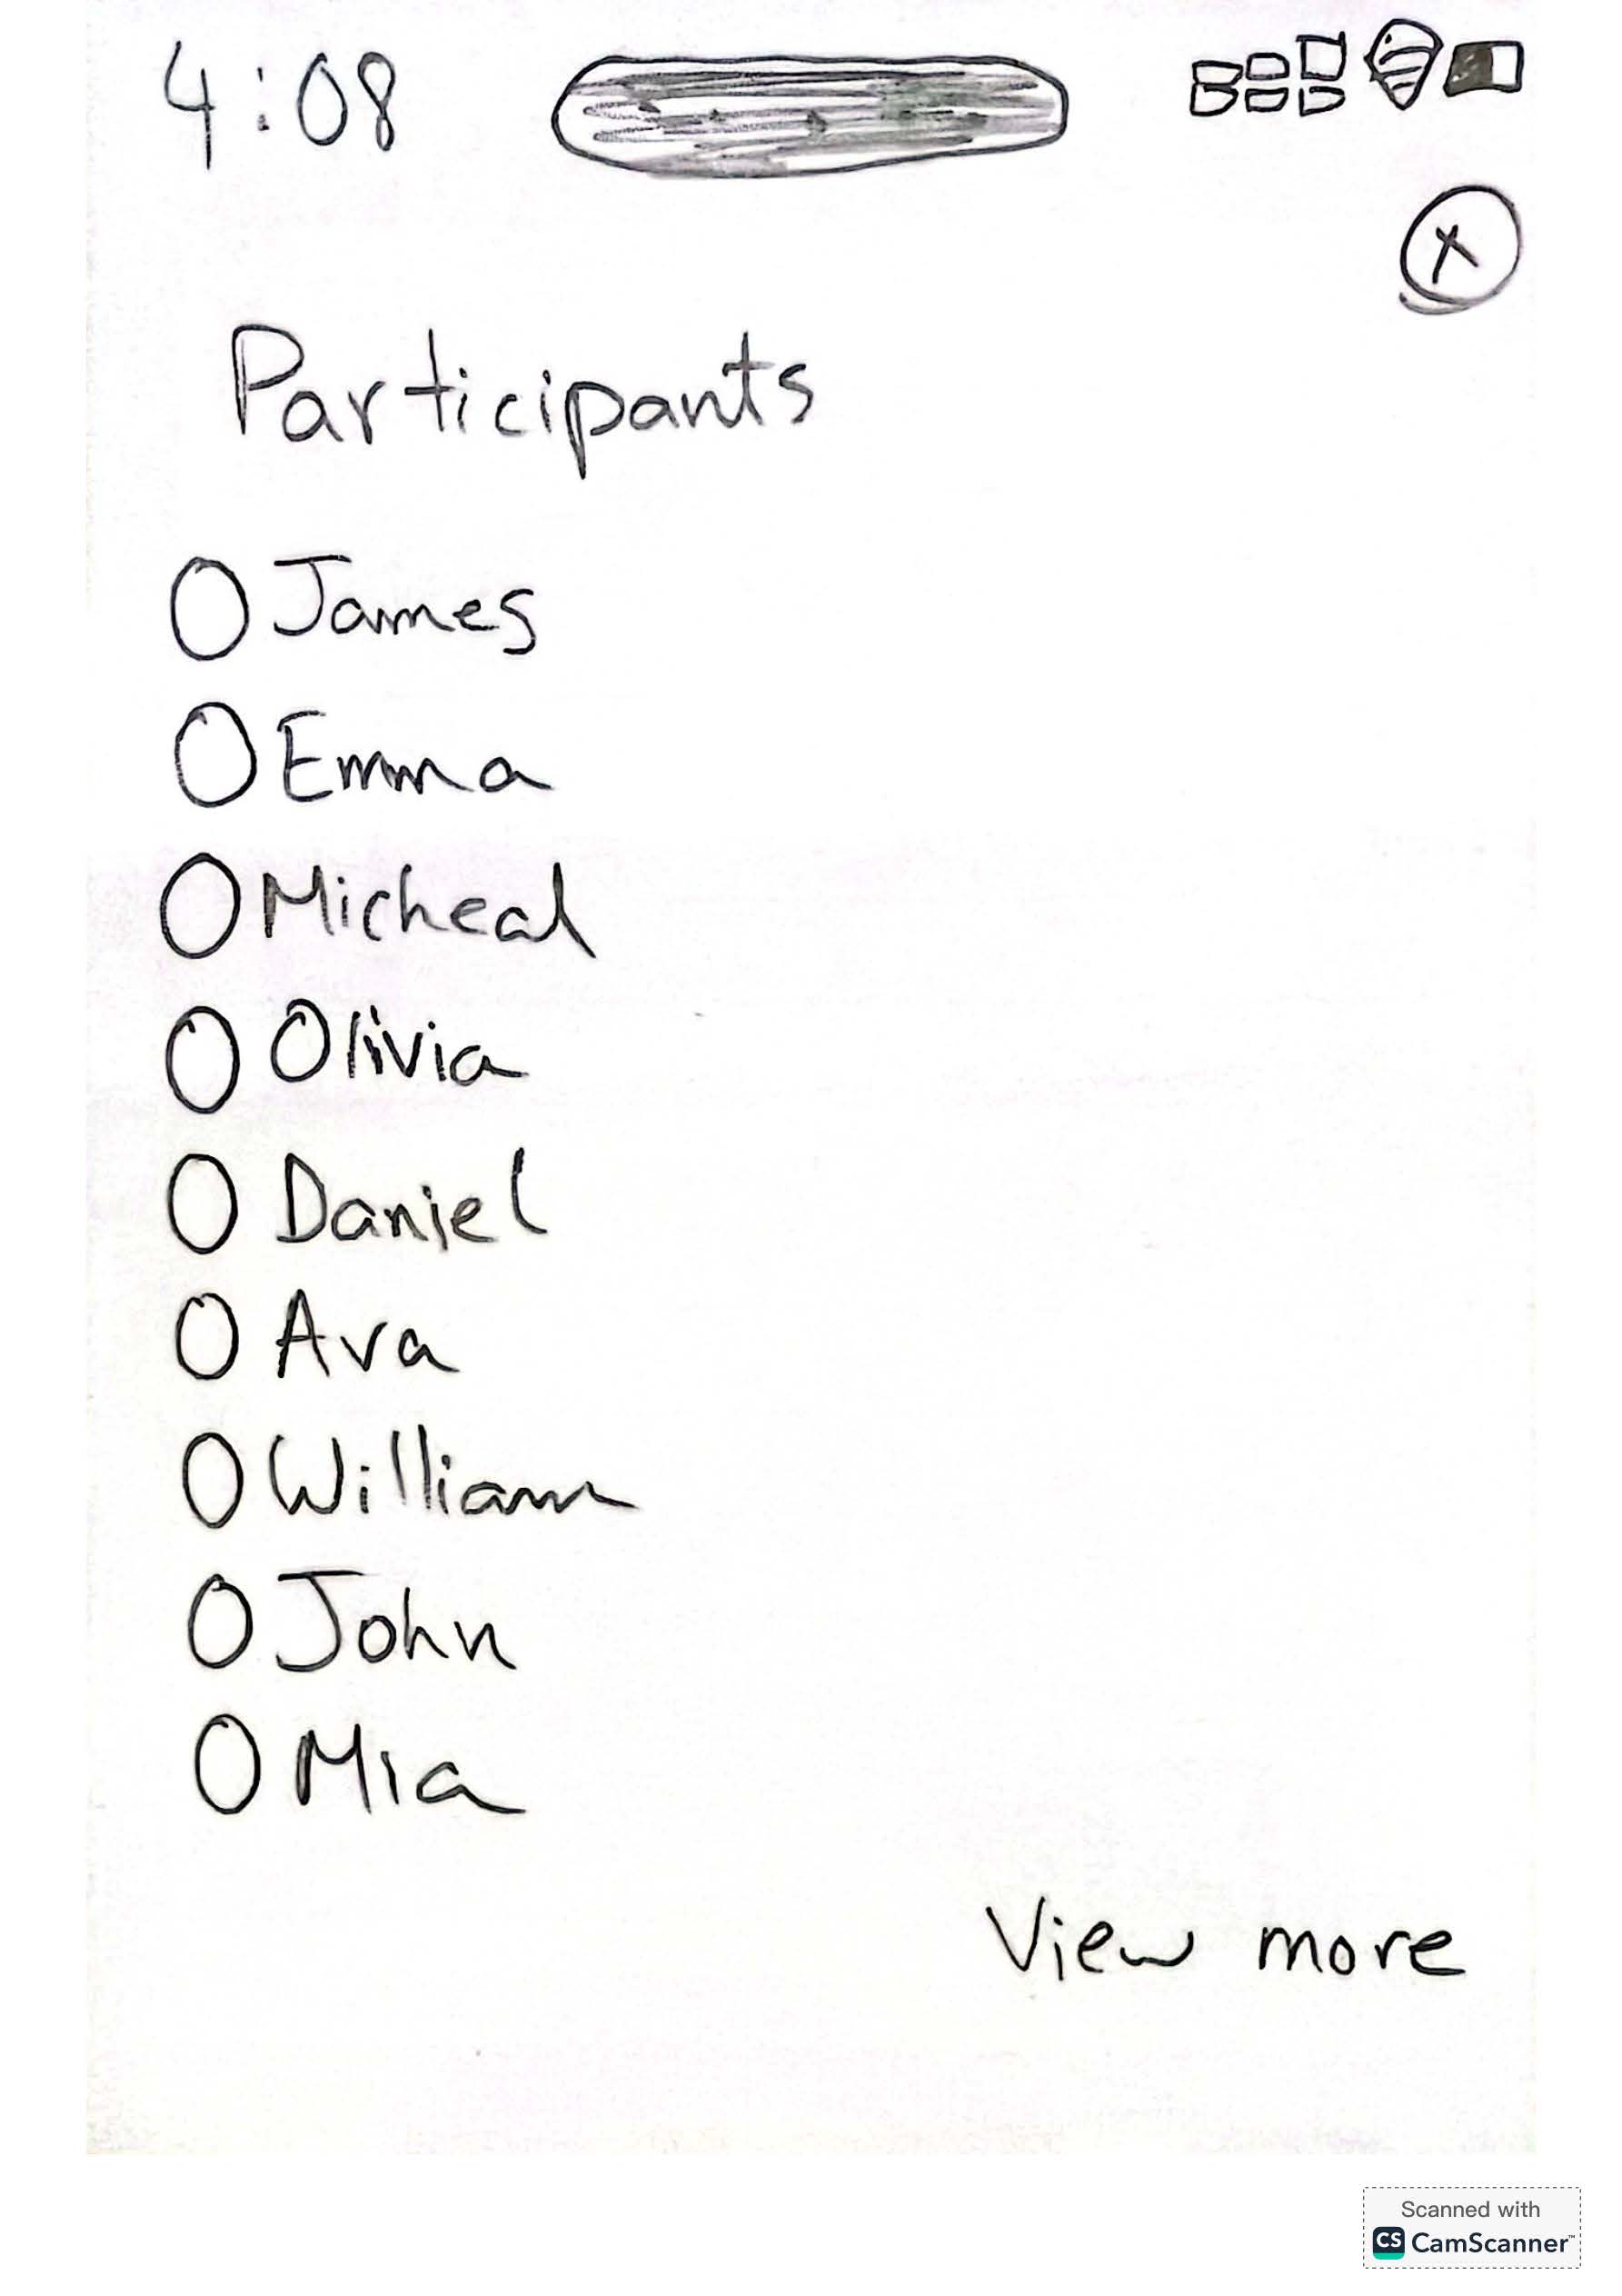 4:08
X
Participants
James
Emma
Micheal
Olivia
Daniel
Ava
William
John
Mia
View more
Scanned with
CS CamScanner™